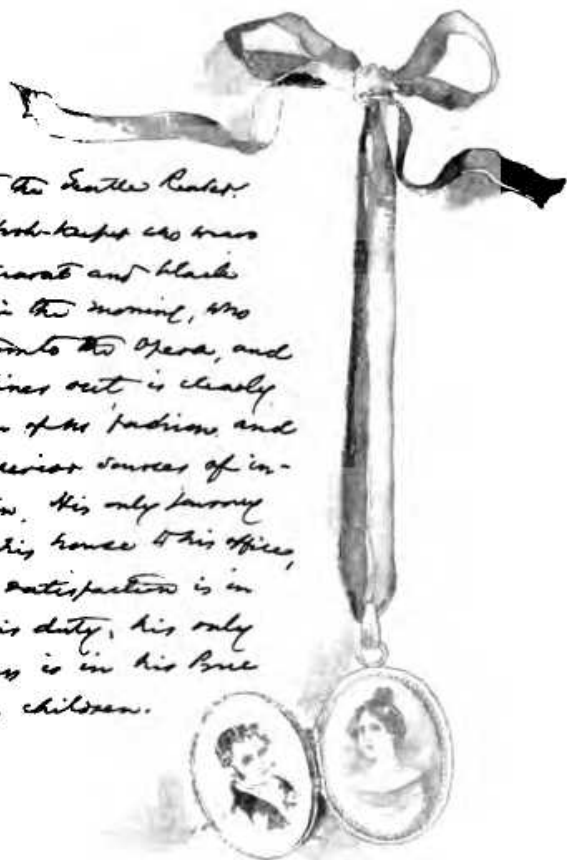 the Gentle Reader.
ook-keeper who wears
cravat and black
in the morning, who
to the Opera, and
dines out is clearly
n of no fashion and
perior sources of in-
n. His only journey
his house to his office,
satisfaction is in
is duty, his only
ss is in his Prue
children.